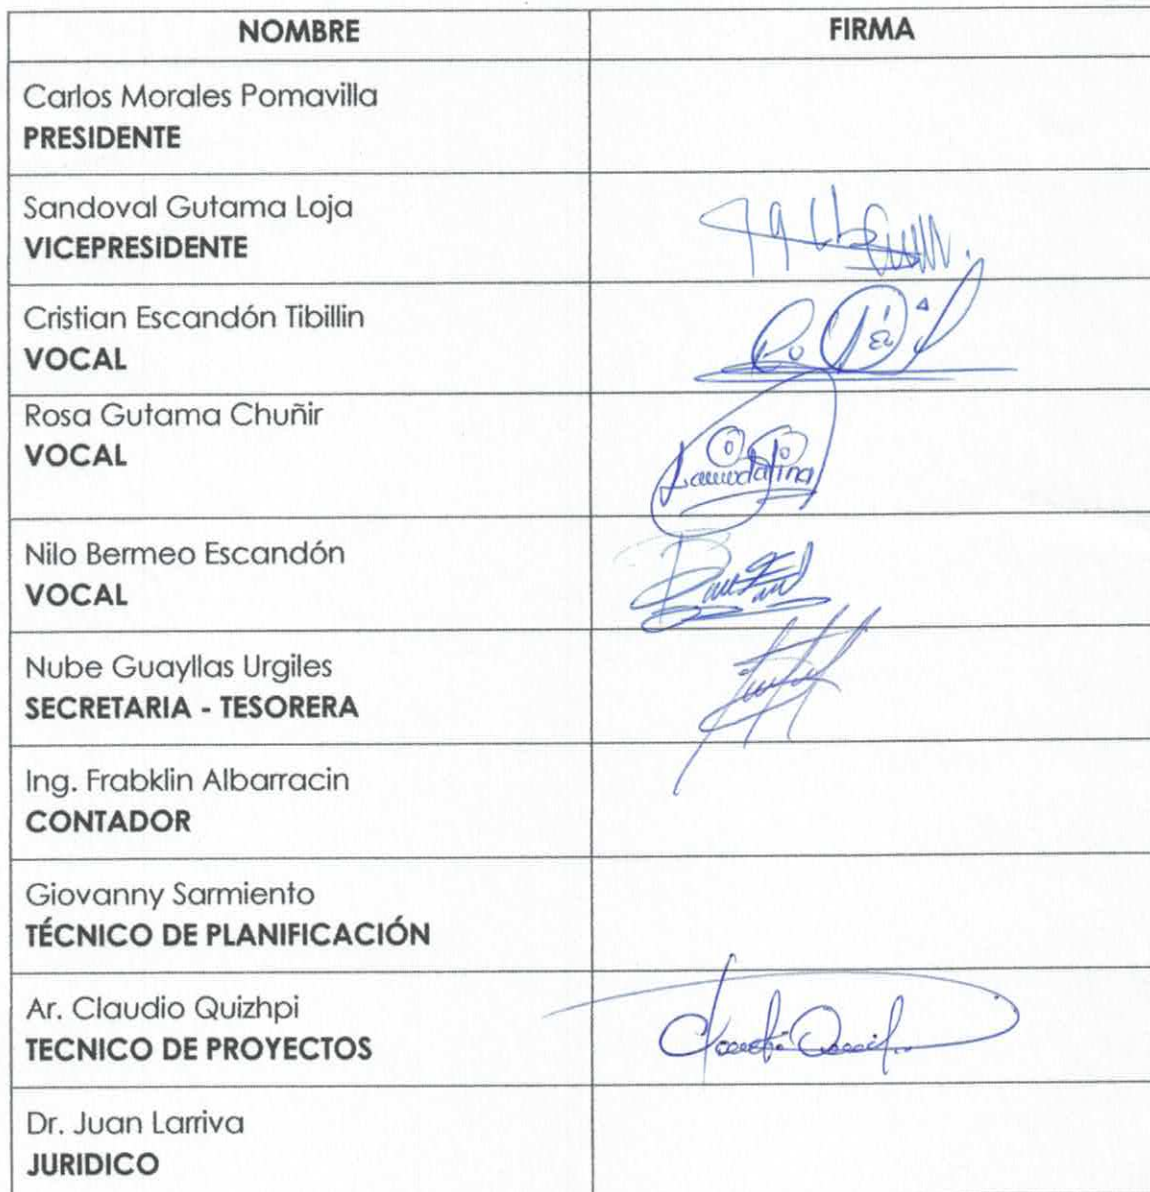 NOMBRE FIRMA
Carlos Morales Pomavilla
PRESIDENTE
Sandoval Gutama Loja
VICEPRESIDENTE
Cristian Escandón Tibillin
VOCAL
Rosa Gutama Chuñir
VOCAL
Nilo Bermeo Escandón
VOCAL
Nube Guayllas Urgiles
SECRETARIA - TESORERA
Ing. Frabklin Albarracin
CONTADOR
Giovanny Sarmiento
TÉCNICO DE PLANIFICACIÓN
Ar. Claudio Quizhpi
TECNICO DE PROYECTOS
Dr. Juan Larriva
JURIDICO